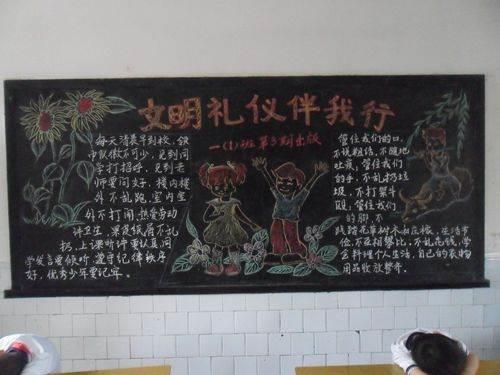 文明礼仪伴我行
一(1)班第3期出版
每天清晨早到校，领
巾队徽不可少，见到同
学打招手，见到老
师要问好，楼内楼
外不乱跑，室内室
外不打闹，热爱劳动
讲卫生，果皮纸屑不乱
扔，上课听讲要认真，同
学发言要倾听，遵守纪律秩序
好，优秀少年要记牢。
管住我们的口，
不说粗话，不随地
吐痰，管住我们
的手，不乱扔垃
圾，不打架斗
殴，管住我们
的脚，不
践踏花草树木和庄稼，生活节
俭，不互相攀比，不乱花钱，学
会料理个人生活，自己的衣物
用品收放整齐。